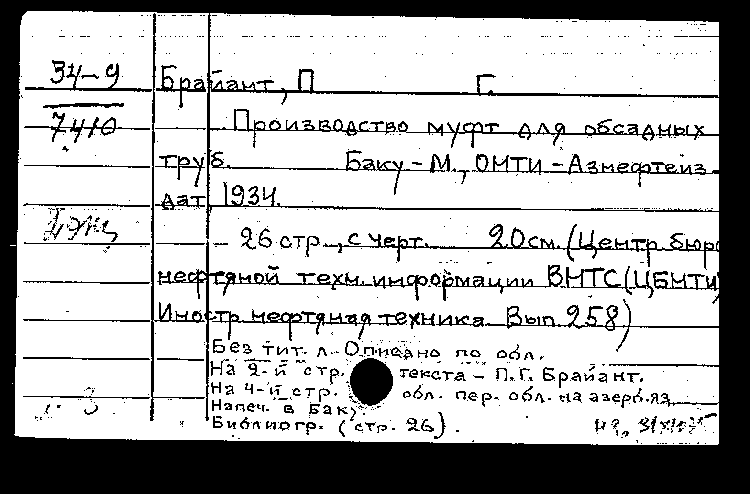 34-9
Брайант, П Г.
7410
Производство муфт для обсадных
труб. Баку-М., ОМТИ-Азнефтеиз-
дат, 1934.
26 стр., с черт. 20см. (Центр. бюро
нефтяной техн. информации ВНТС(ЦБНТИ)
Иностр. нефтяная техника. Вып. 258)
Без тит. л. Описано по обл.
На 2-й стр. текста - П.Г. Брайант.
На 4-й стр. обл. пер. обл. на азерб. яз.
Напеч. в Баку
Библиогр. (стр. 26).
3